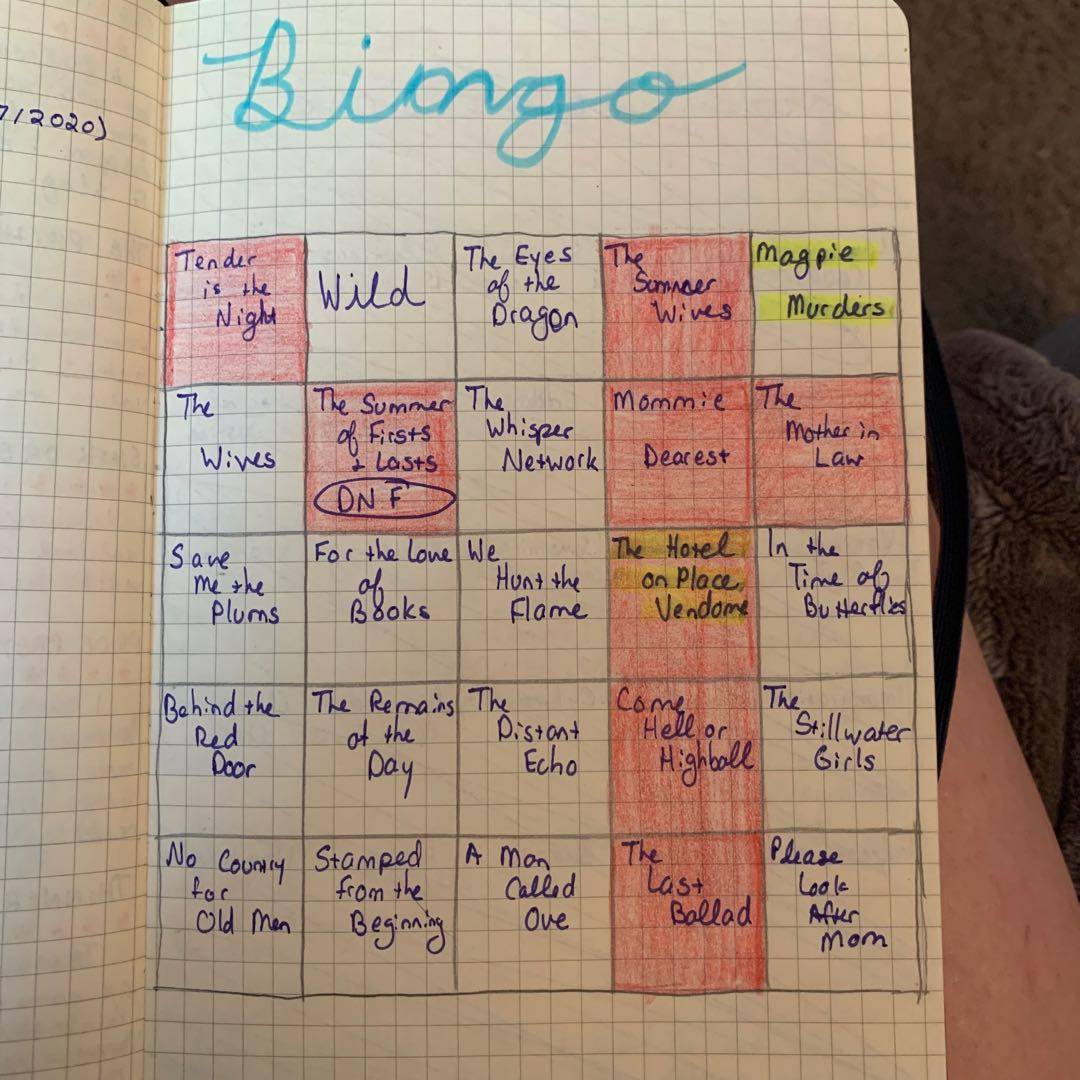 7/2020)
Bingo
Tender
is the
Night
Wild
The Eyes
of the
Dragon
The
Summer
Wives
Magpie
Murders
The
Wives
The Summer
of Firsts
+ Lasts
DNF
The
Whisper
Network
Mommie
Dearest
The
Mother in
Law
Save
Me the
Plums
For the Love
of
Books
We
Hunt the
Flame
The Hotel
on Place
Vendome
In the
Time of
Butterflies
Behind the
Red
Door
The Remains
of the
Day
The
Distant
Echo
Come
Hell or
Highball
The
Stillwater
Girls
No Country
for
Old Men
Stamped
from the
Beginning
A Man
Called
Ove
The
Last
Ballad
Please
Look
After
Mom